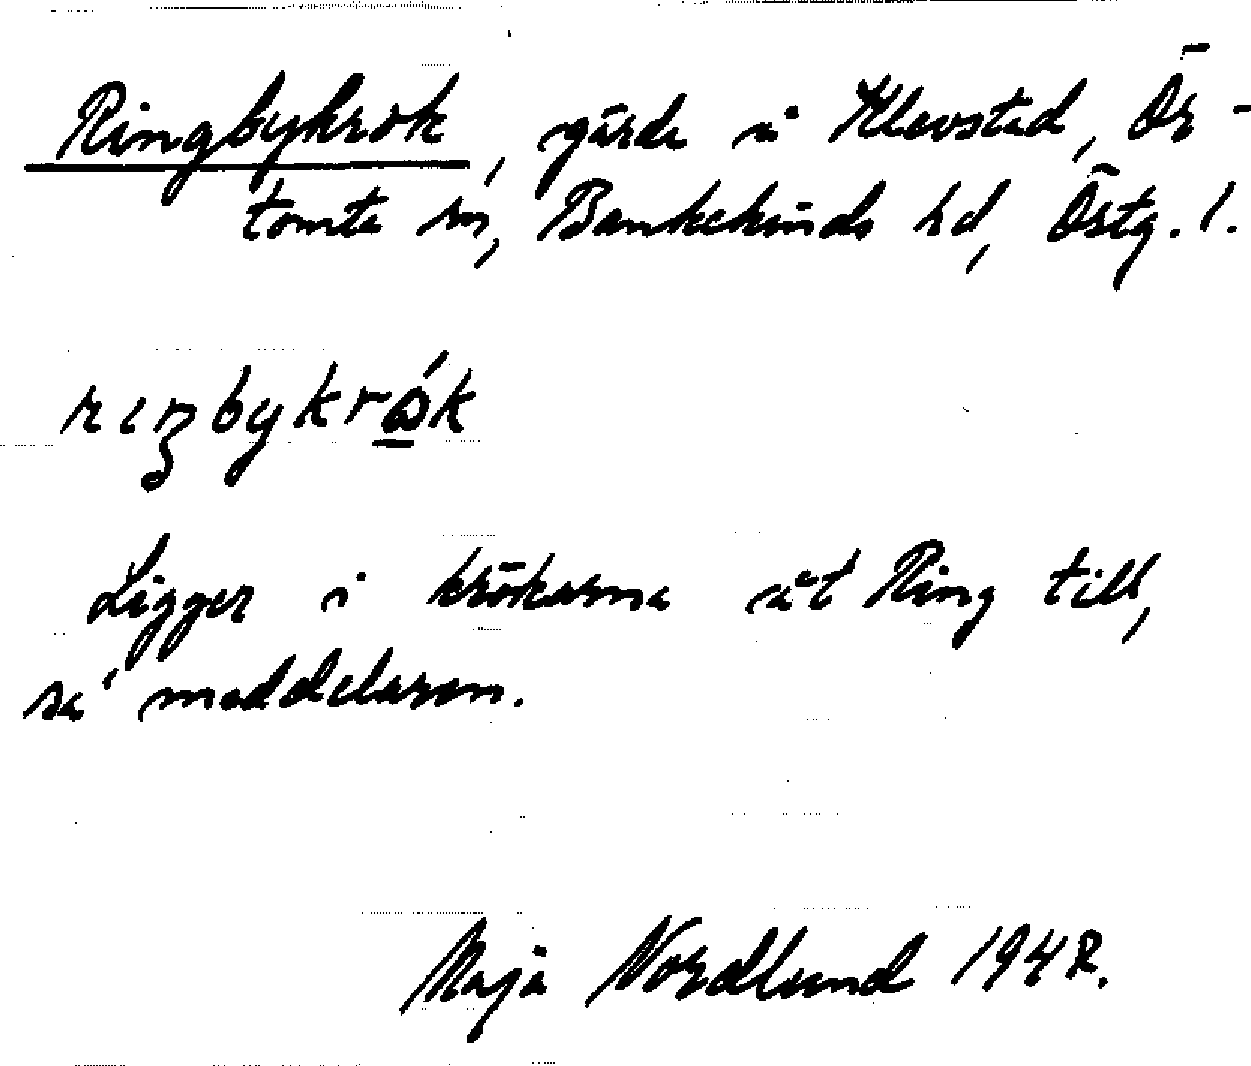 Ringbykrok, gärde i Klevstad, Ör-
tomta sn, Bankekinds hd, Östg. l.
rıŋbykrók
Ligger i krökarna åt Ring till,
sa' meddelaren.
Maja Nordlund 1947.